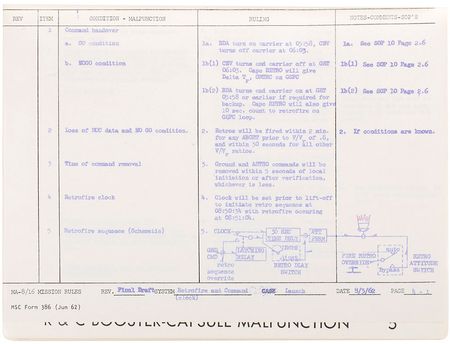 REV ITEM CONDITION - MALFUNCTION RULING NOTES-COMMENTS-SOP'S
1 Command handover
a. GO condition
1a. BDA turn on carrier at 05:58, CNV
turns off carrier at 06:03.
1a. See SOP 10 Page 2.6
b. NOGO condition
1b(1) CNV turns and carrier off at GET
06:03. Cape RETRO will give
Delta T, on GOPC
1b(1) See SOP 10 Page 2.6
1b(2) BDA turns end carrier on at GET
05:58 or earlier if required for
backup. Cape RETRO will also give
10 sec. count to retrofire on
GOPC loop.
1b(2) See SOP 10 Page 2.6
2 Loss of data and NO GO condition.
2. Retros will be fired within 2 min.
for any ABORT prior to V/V of .8,
and within 30 seconds for all other
V/V ratios.
2. If conditions are known.
3 Time of command removal
3. Ground and ASTRO commands will be
removed within 5 seconds of local
initiation or after verification,
whichever is less.
4 Retrofire clock
4. Clock will be set prior to lift-off
to initiate retro sequence at
08:50:34 with retrofire occuring
at 08:51:04.
5 Retrofire sequence (Schematic)
5. CLOCK
30 SEC
TIME DELAY
ATT
PERM
GND
CMD
LATCHING
RELAY
retro
sequence
Override
RETRO DLAY
SWITCH
FIRE RETRO
OVERRIDE
auto
Bypass
RETRO
ATTITUDE
SWITCH
MA-8/16 MISSION RULES REV. Final Draft SYSTEM Retrofire and Command (clock) CASE Launch DATE 9/5/62 PAGE 4-1
MSC Form 386 (Jun 62)
R & C BOOSTER-CAPSULE MALFUNCTION 5